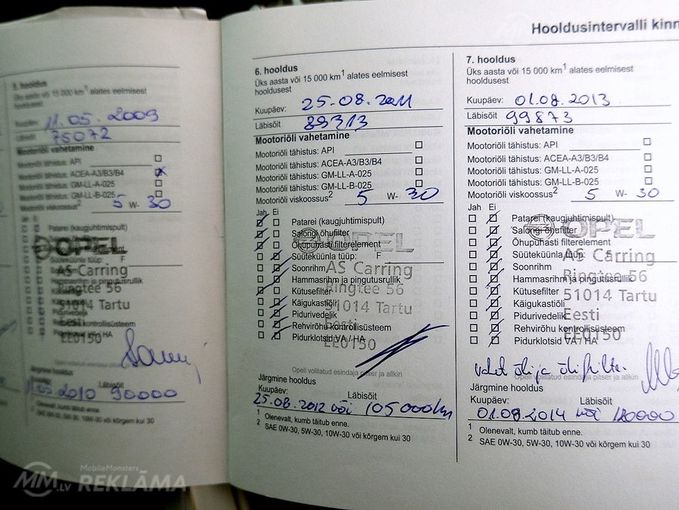 Hooldusintervalli kinn
5. hooldus
Üks aasta või 15 000 km¹ alates eelmisest
hooldusest
Kuupäev: 11.05.2009
Läbisõit
75072
Mootoriõli vahetamine
Mootoriõli tähistus: API
Mootoriõli tähistus: ACEA-A3/B3/B4
Mootoriõli tähistus: GM-LL-A-025
Mootoriõli tähistus: GM-LL-B-025
Mootoriõli viskoossus² 5 W- 30
Jah Ei
Patarei (kaugjuhtimispult)
Süüteküünla tüüp: F
Soonrihm
Hammasrihm ja pingutusrullik
Kütusefilter
Käigukastiõli
Pidurivedelik
Rehvirõhu kontrollisüsteem
Pidurklotsid VA / HA
OPEL
AS Carring
Ringtee 56
51014 Tartu
Eesti
EE0150
Järgmine hooldus
Kuupäev: Läbisõit
11.05.2010 90000
¹ Olenevalt, kumb täitub enne.
² SAE 0W-30, 5W-30, 10W-30 või kõrgem kui 30
6. hooldus
Üks aasta või 15 000 km¹ alates eelmisest
hooldusest
Kuupäev: 25.08.2011
Läbisõit 89313
Mootoriõli vahetamine
Mootoriõli tähistus: API
Mootoriõli tähistus: ACEA-A3/B3/B4
Mootoriõli tähistus: GM-LL-A-025
Mootoriõli tähistus: GM-LL-B-025
Mootoriõli viskoossus² 5 W- 30
Jah Ei
Patarei (kaugjuhtimispult)
Salongi õhufilter
Õhupuhasti filterelement
Süüteküünla tüüp: F
Soonrihm
Hammasrihm ja pingutusrullik
Kütusefilter
Käigukastiõli
Pidurivedelik
Rehvirõhu kontrollisüsteem
Pidurklotsid VA / HA
OPEL
AS Carring
Ringtee 56
51014 Tartu
Eesti
EE0150
Opeli volitatud esindaja pitser ja allkiri
Järgmine hooldus
Kuupäev: Läbisõit
25.08.2012 või 105000km
¹ Olenevalt, kumb täitub enne.
² SAE 0W-30, 5W-30, 10W-30 või kõrgem kui 30
7. hooldus
Üks aasta või 15 000 km¹ alates eelmisest
hooldusest
Kuupäev: 01.08.2013
Läbisõit 99873
Mootoriõli vahetamine
Mootoriõli tähistus: API
Mootoriõli tähistus: ACEA-A3/B3/B4
Mootoriõli tähistus: GM-LL-A-025
Mootoriõli tähistus: GM-LL-B-025
Mootoriõli viskoossus² 5 W- 30
Jah Ei
Patarei (kaugjuhtimispult)
Salongi õhufilter
Õhupuhasti filterelement
Süüteküünla tüüp: F
Soonrihm
Hammasrihm ja pingutusrullik
Kütusefilter
Käigukastiõli
Pidurivedelik
Rehvirõhu kontrollisüsteem
Pidurklotsid VA / HA
OPEL
AS Carring
Ringtee 56
51014 Tartu
Eesti
EE0150
õli ja õlifilter
Opeli volitatud esindaja pitser ja allkiri
Järgmine hooldus
Kuupäev: Läbisõit
01.08.2014 või 120000
¹ Olenevalt, kumb täitub enne.
² SAE 0W-30, 5W-30, 10W-30 või kõrgem kui 30
MobileMonsters
MM.LV REKLĀMA